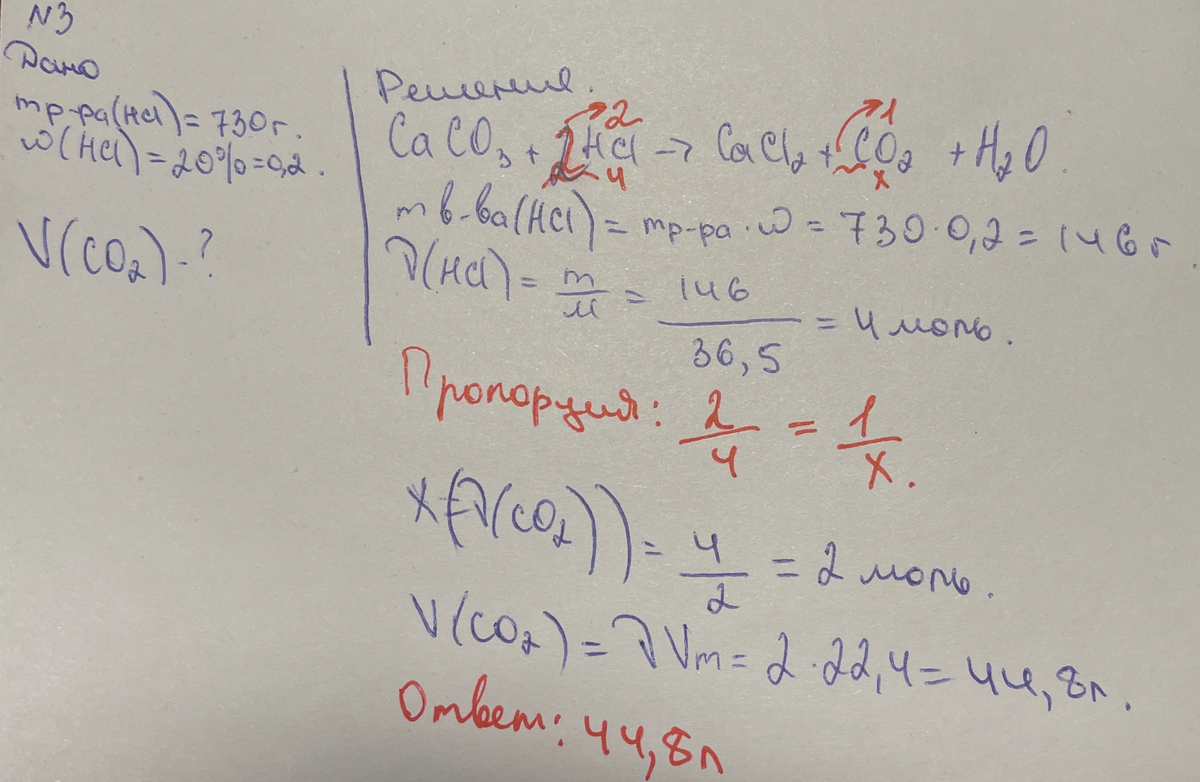 N3
Дано
mр-ра(HCl) = 730 г.
w(HCl) = 20% = 0,2.
V(CO₂) - ?
Решение.
2 1
CaCO₃ + 2HCl → CaCl₂ + CO₂ + H₂O
4 x
m в-ва(HCl) = mр-ра · w = 730 · 0,2 = 146 г
ν(HCl) = m/M = 146/36,5 = 4 моль.
Пропорция: 2/4 = 1/x.
x(ν(CO₂)) = 4/2 = 2 моль.
V(CO₂) = ν Vm = 2 · 22,4 = 44,8 л.
Ответ: 44,8 л